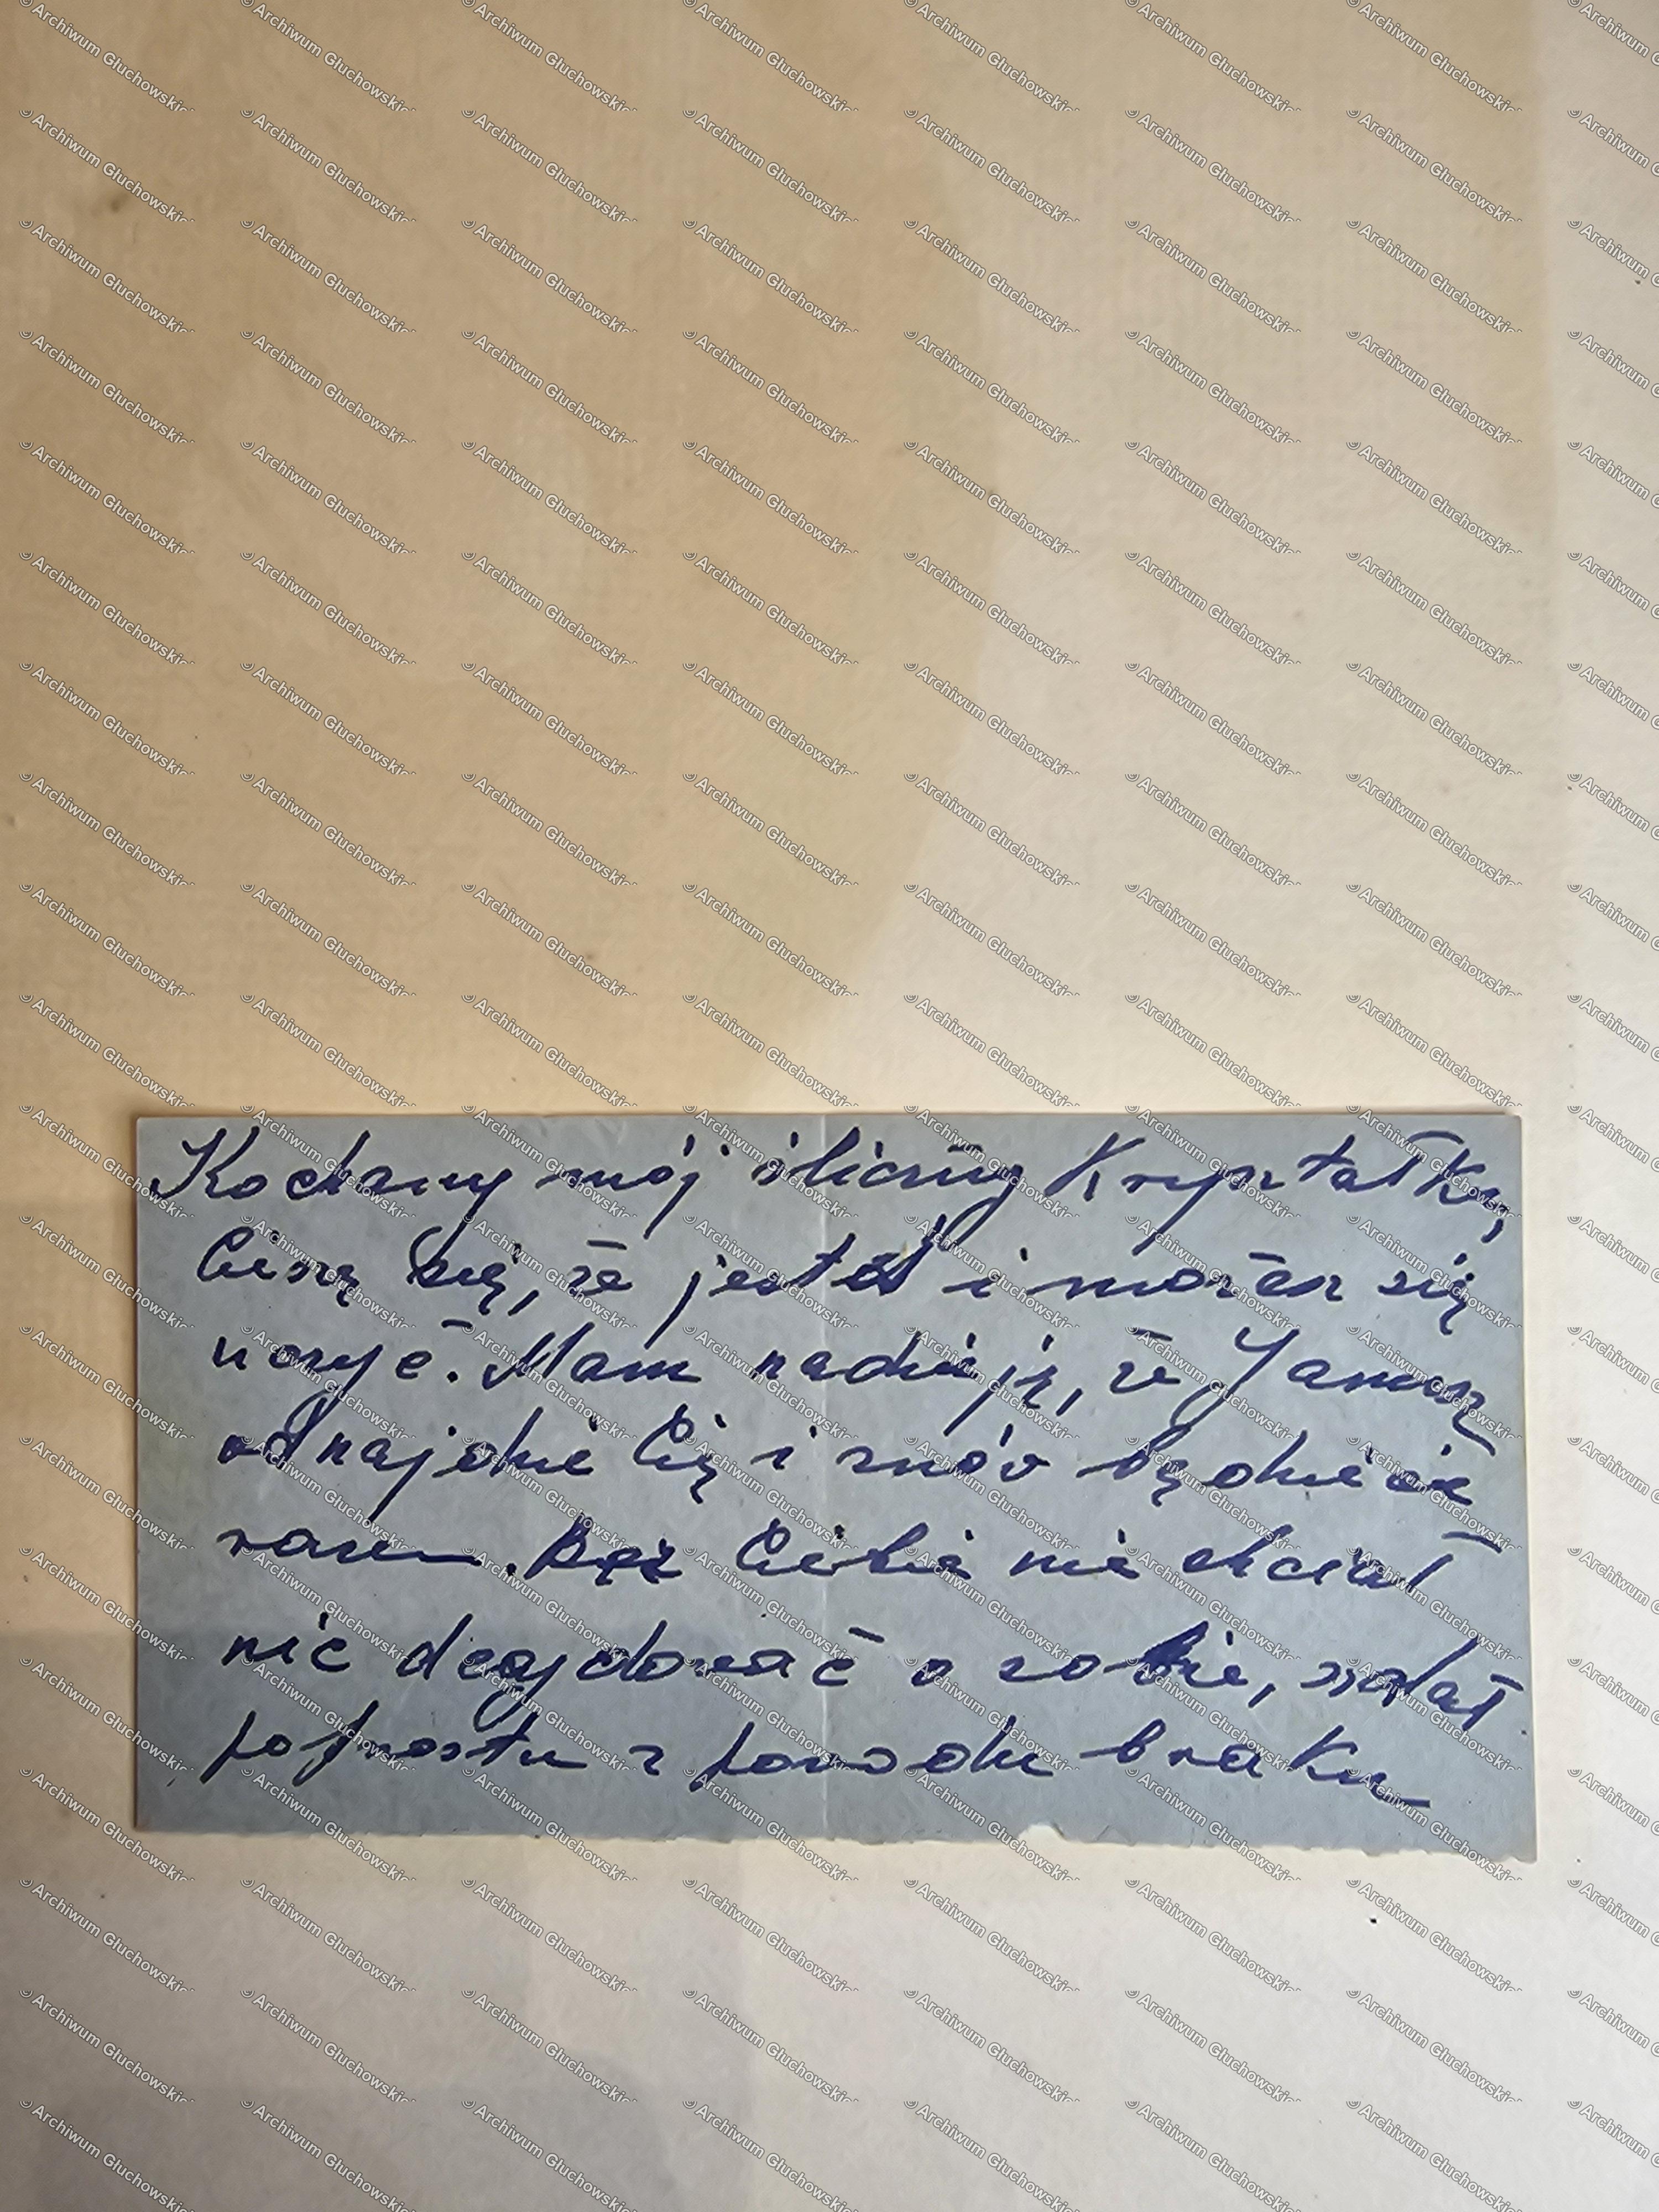 Kochany mój śliczny Kryształku,
Cieszę się, że jesteś i możesz się
uczyć. Mam nadzieję, że Janusz
odnajdzie Cię i znów będziecie
razem. Bez Ciebie nie chciał
nic decydować o sobie,
poprostu z powodu braku
© Archiwum Głuchowskic